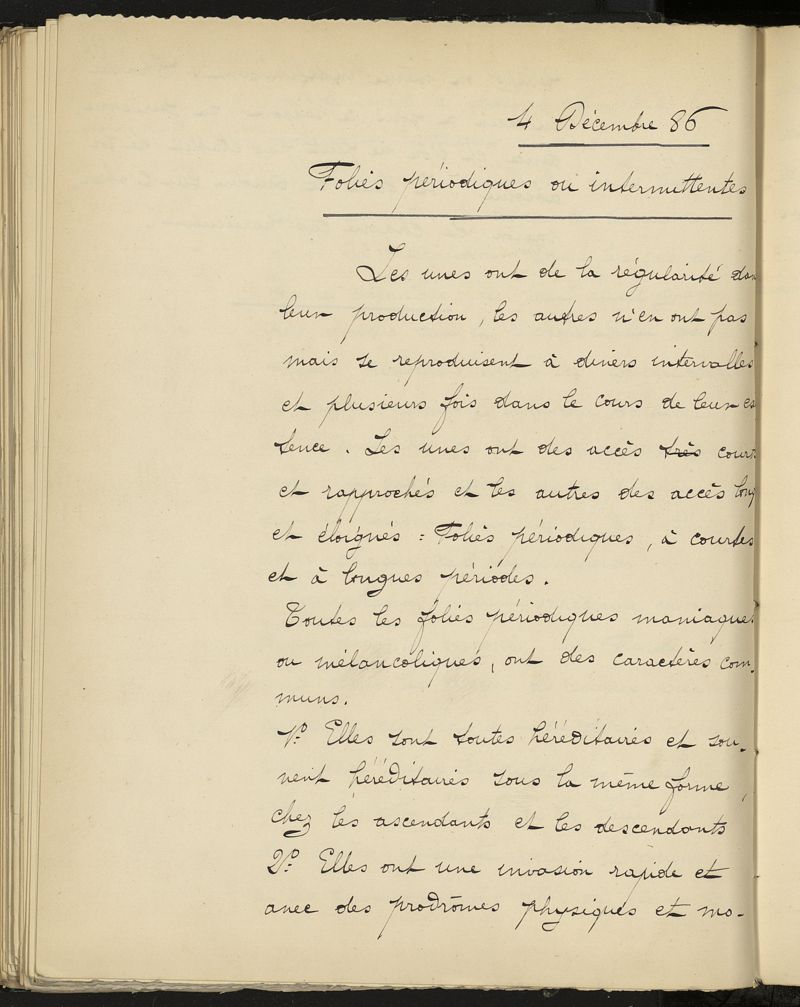 4 Décembre 86
Folies périodiques ou intermittentes
Les unes ont de la régularité dans
leur production, les autres n'en ont pas
mais se reproduisent à divers intervalles
et plusieurs fois dans le cours de leur exis
tence. Les unes ont des accès très courts
et rapprochés et les autres des accès longs
et éloignés : Folies périodiques, à courtes
et à longues périodes.
Toutes les folies périodiques maniaques
ou mélancoliques, ont des caractères com-
muns.
1º Elles sont toutes héréditaires et sou-
vent héréditaires sous la même forme,
chez les ascendants et les descendants
2º Elles ont une invasion rapide et
avec des prodrômes physiques et mo-